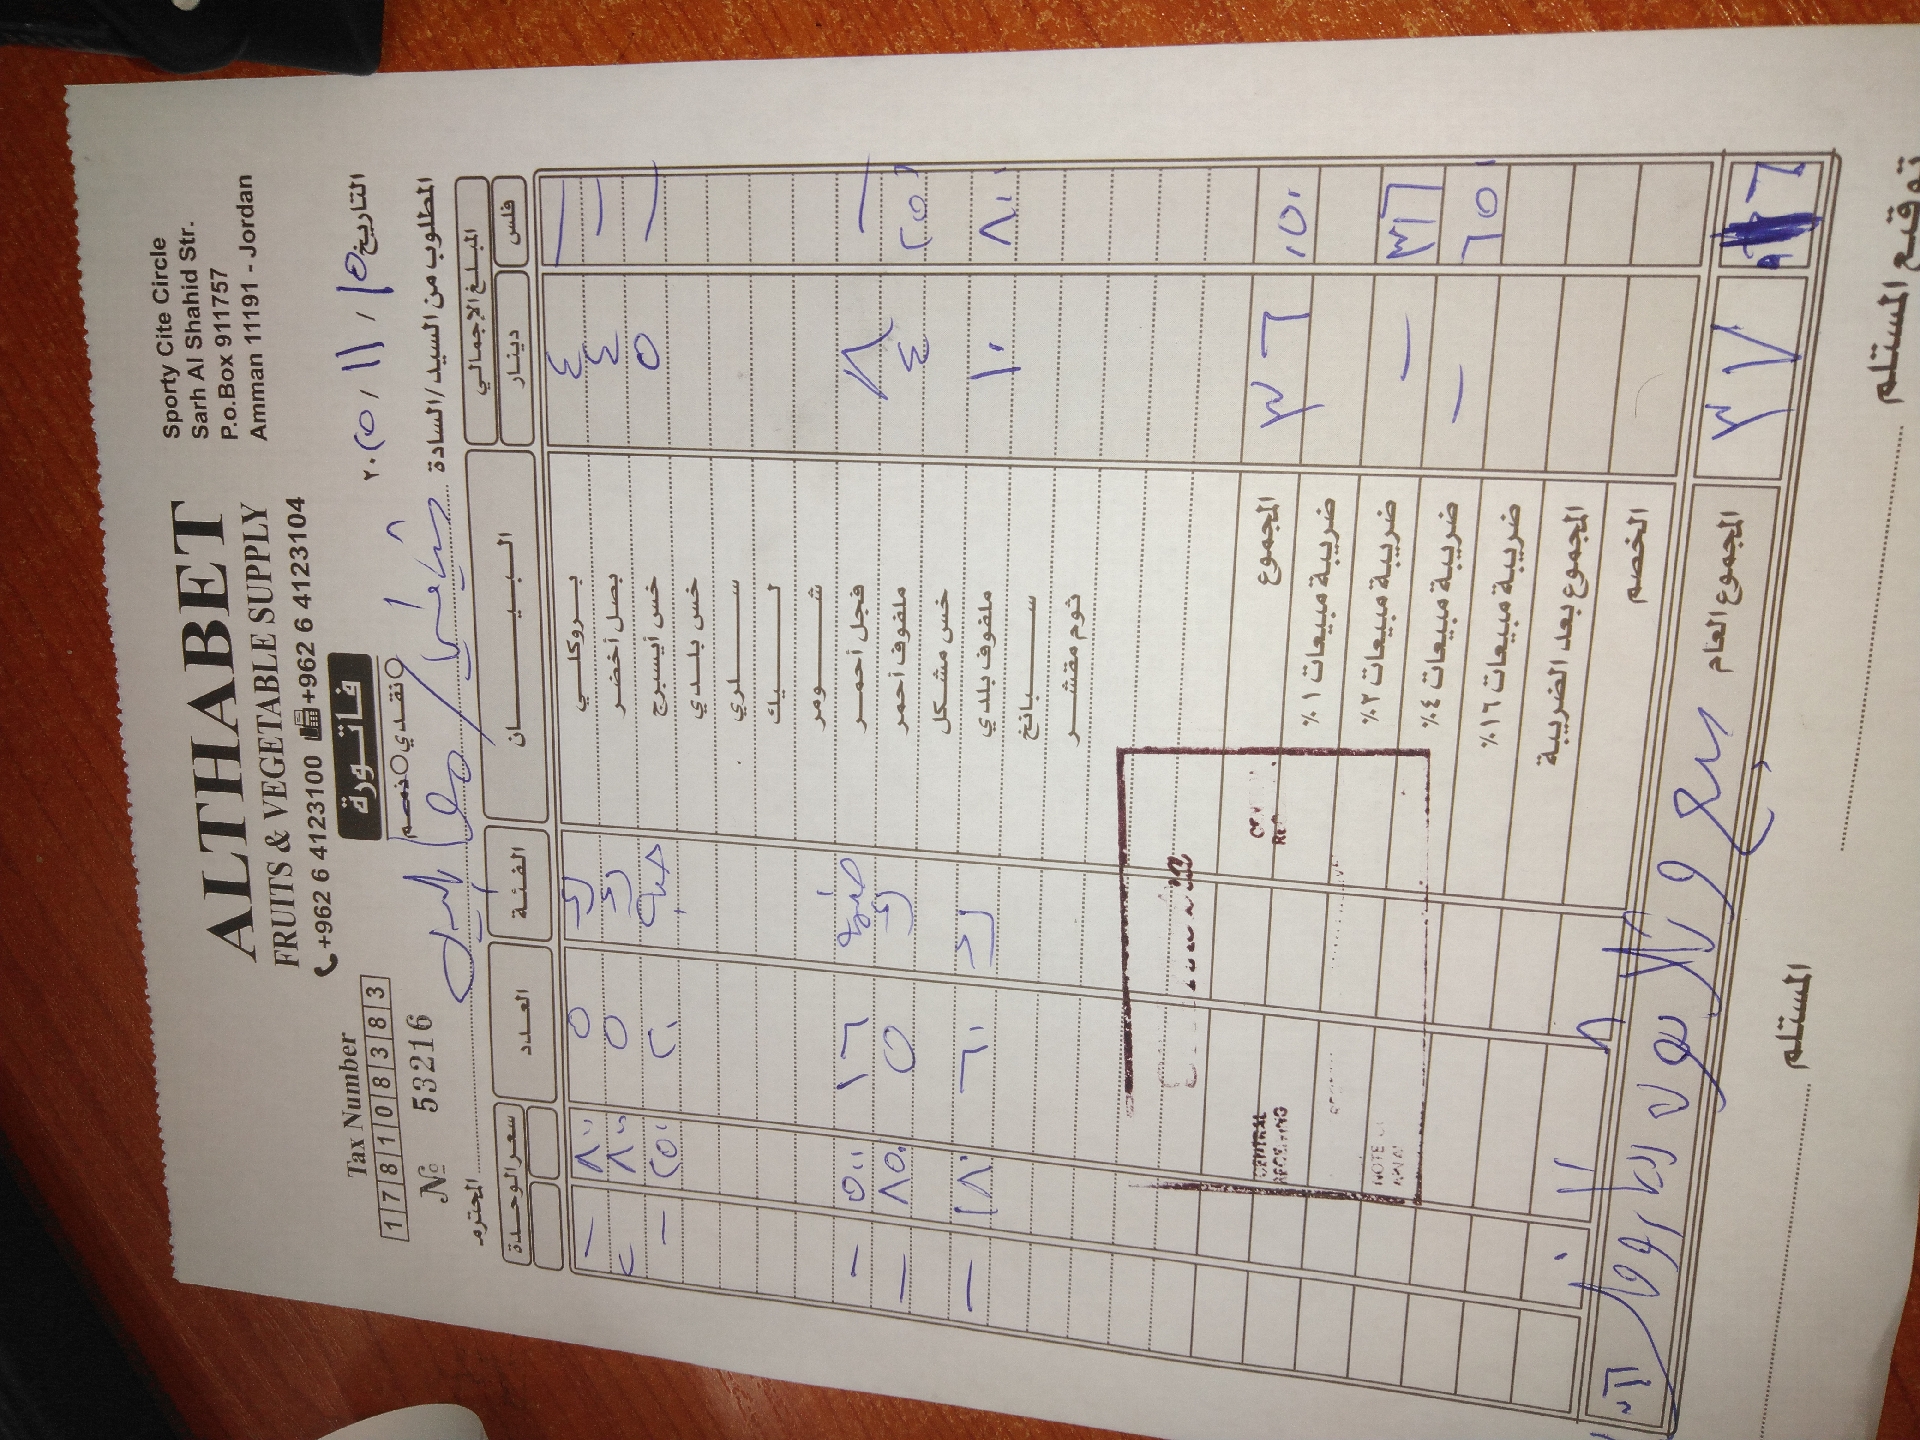 ALTHABET
FRUITS & VEGETABLE SUPPLY
+962 6 4123100 +962 6 4123104
Sporty Cite Circle
Sarh Al Shahid Str.
P.o.Box 911757
Amman 11191 - Jordan
Tax Number
1 7 8 1 0 8 3 8 3
№ 53216
فاتورة
نقدي ذمم
التاريخ ١٥ / ١١ / ٢٠٢٥
المطلوب من السيد/السادة
المحترم
المبلغ الإجمالي البيان الفئة العدد سعر الوحدة
فلس دينار
— ٤ بروكلي ٥ ٨٠٠ —
— ٤ بصل أخضر ٥ ٨٠٠
— ٥ خس أيسبرج حبة ٢٠ ٢٥٠ —
خس بلدي
سلري
ليك
شومر
— ٨ فجل أحمر ١٦ ٥٠٠ —
٢٥٠ ٤ ملفوف أحمر ٥ ٨٥٠ —
خس مشكل
٨٠٠ ١٠ ملفوف بلدي ٦٠ ١٨٠ —
سبانخ
ثوم مقشر
٠٥٠ ٣٦ المجموع
ضريبة مبيعات ١٪
٣١٦ — ضريبة مبيعات ٢٪
٦٥٠ — ضريبة مبيعات ٤٪
ضريبة مبيعات ١٦٪
المجموع بعد الضريبة
الخصم
٣٧ المجموع العام
CENTRAL
RECEIVING
المستلم
توقيع المستلم